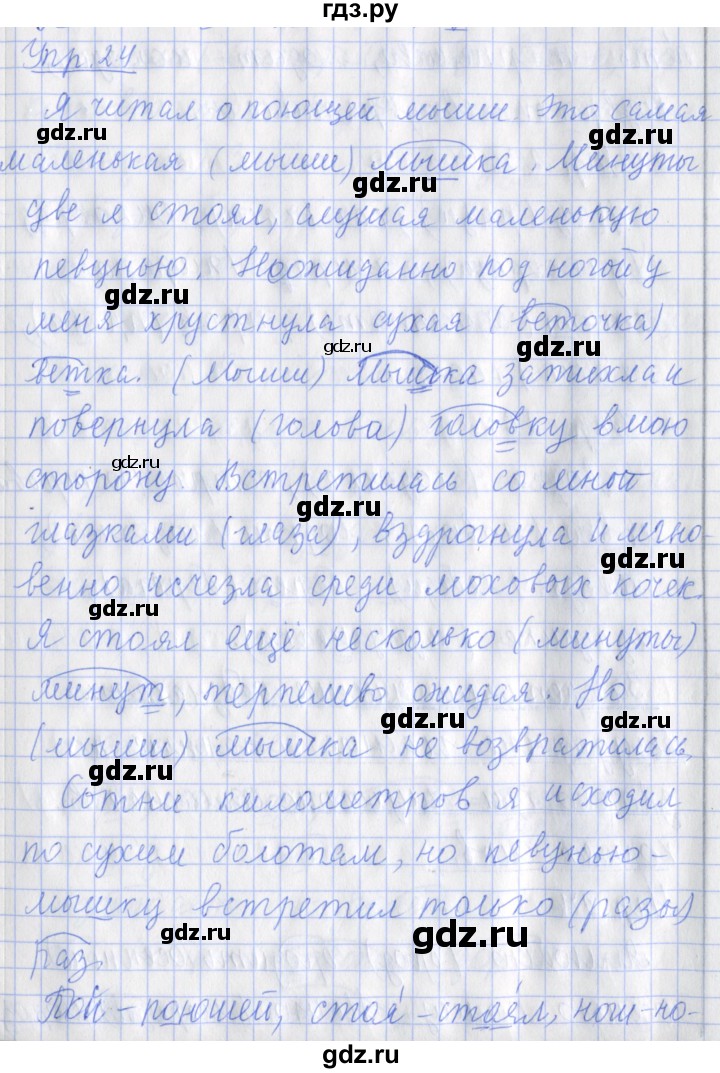 гдз.ру
Упр. 24
Я читал о поющей мыши. Это самая
gdz.ru
gdz.ru
маленькая (мыши) мышка. Минуты
gdz.ru
две я стоял, слушая маленькую
певунью. Неожиданно под ногой у
gdz.ru
меня хрустнула сухая (веточка)
gdz.ru
gdz.ru
ветка. (мыши) мышка затихла и
повернула (голова) головку в мою
gdz.ru
сторону. Встретилась со мной
gdz.ru
глазками (глаза), вздрогнула и мгно-
gdz.ru
венно исчезла среди моховых кочек.
gdz.ru
Я стоял ещё несколько (минуты)
минут, терпеливо ожидая. Но
gdz.ru
gdz.ru
(мыши) мышка не возвратилась.
gdz.ru
Сотни километров я исходил
по сухим болотам, но певунью-
мышку встретил только (разы)
gdz.ru
gdz.ru
раз.
Пой - поющей, стоя - стоял, ног - но-
gdz.ru